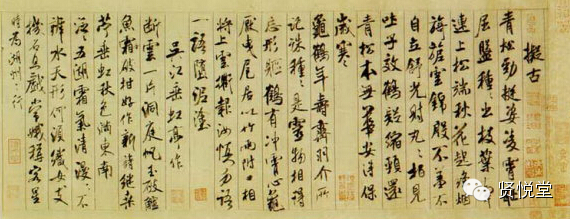 擬古
青松勁挺姿凌霄耻
屈盤種種出枝葉牽
連上松端秋花起絳烟
旖旎雲錦殷不羞不
自立舒光射丸丸柏見
吐子效鶴疑縮頸還
青松本無華安得保
歲寒
龜鶴年壽齊羽介所
託殊種種是靈物相得
忘形軀鶴有冲霄心龜
厭曳尾居以竹兩附口相
將上雲衢報汝慎勿語
一語墮泥塗
吳江垂虹亭作
斷雲一片洞庭帆玉破鱸
魚霜破柑好作新詩繼桑
苧垂虹秋色滿東南
泛泛五湖霜氣清漫漫不
辨水天形何須織女支
機石且戲常娥稱客星
時為湖州之行
贤悦堂